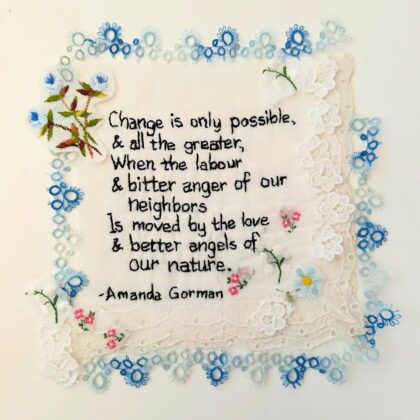 Change is only possible,
& all the greater,
When the labour
& bitter anger of our
neighbors
Is moved by the love
& better angels of
our nature.
-Amanda Gorman